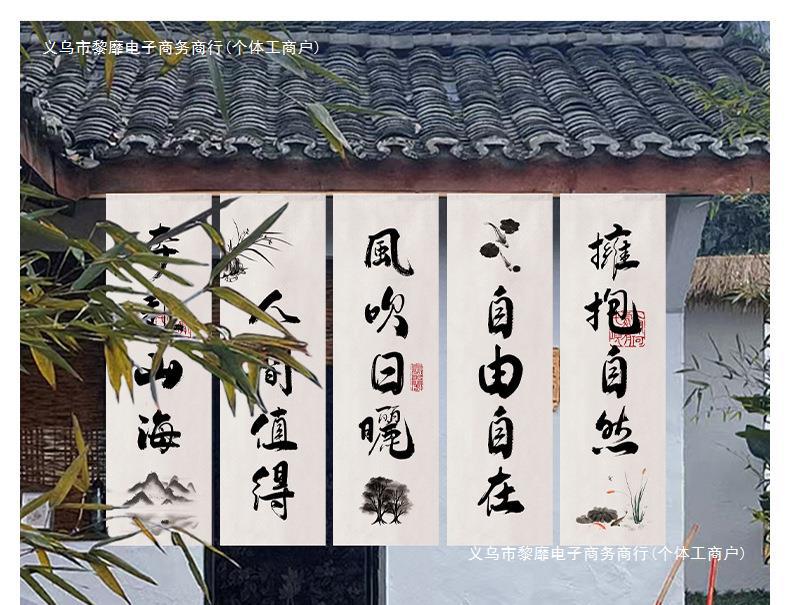 义乌市黎靡电子商务商行(个体工商户)
擁抱自然
自由自在
風吹日曬
人间值得
奔赴山海
义乌市黎靡电子商务商行(个体工商户)